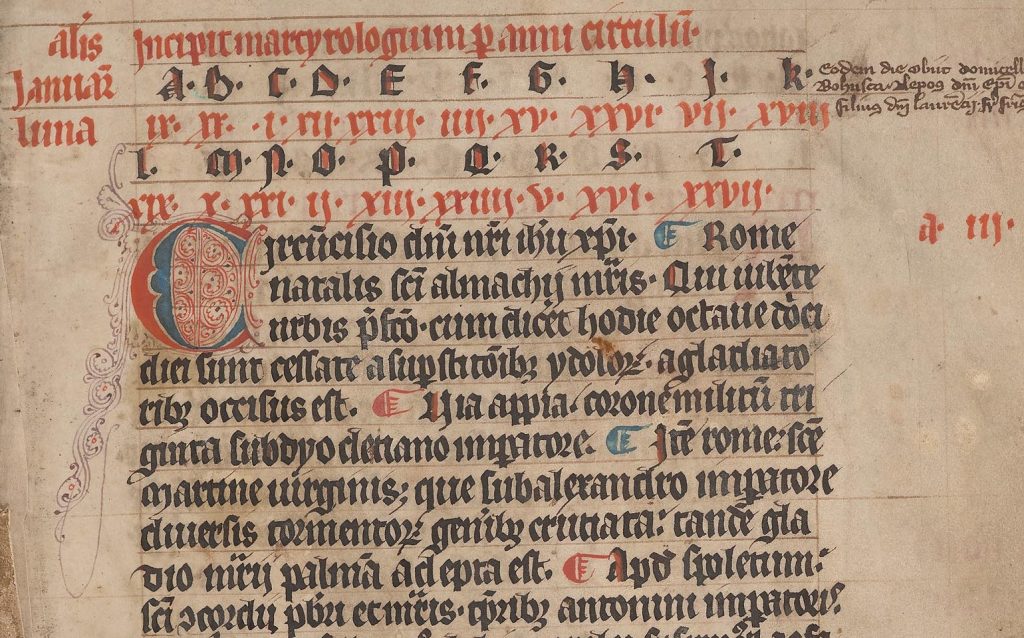 alis
Januar̄
luna
Incipit martyrologium ꝑ anni circulū·
A· B· C· D· E F· G· H· J· K·
ix· xx· ·i· xii· xxiii· iiii· xv· xxvi· vii· xviii
l· M· N· O· P· Q· R· S· T·
xix· x· xxi· ii· xiii· xxiiii· v· xvi· xxvii·
Eodem die obiit domicell
Bohusca· Nepos dn̄i ep̄i
filius dn̄i laurēcij·
a· iii·
Circūcisio dn̄i nr̄i ih'u xp̄i· Rome
natalis sc̄i almachij mr̄is· Qui iubēte
urbis p̄fc̄o· cum dicēt hodie octaue dn̄ici
diei sunt cessate a suꝑstitōibꝫ ydoloꝝ· a gladiato
ribꝫ occisus est. Uia appia· corone militū tri
ginta sub dyocletiano imꝑatore. Itē rome: scē
Martine uirginis; que sub alexandro imꝑatore
diuersis tormentoꝝ gen̄ibꝫ cruciata: tandē gla
dio mr̄ij palmā adepta est. Apd̄ spoletum:
sc̄i ↄcordij pb̄ri et mr̄is· tp̄ribꝫ antonini imꝑatoris: